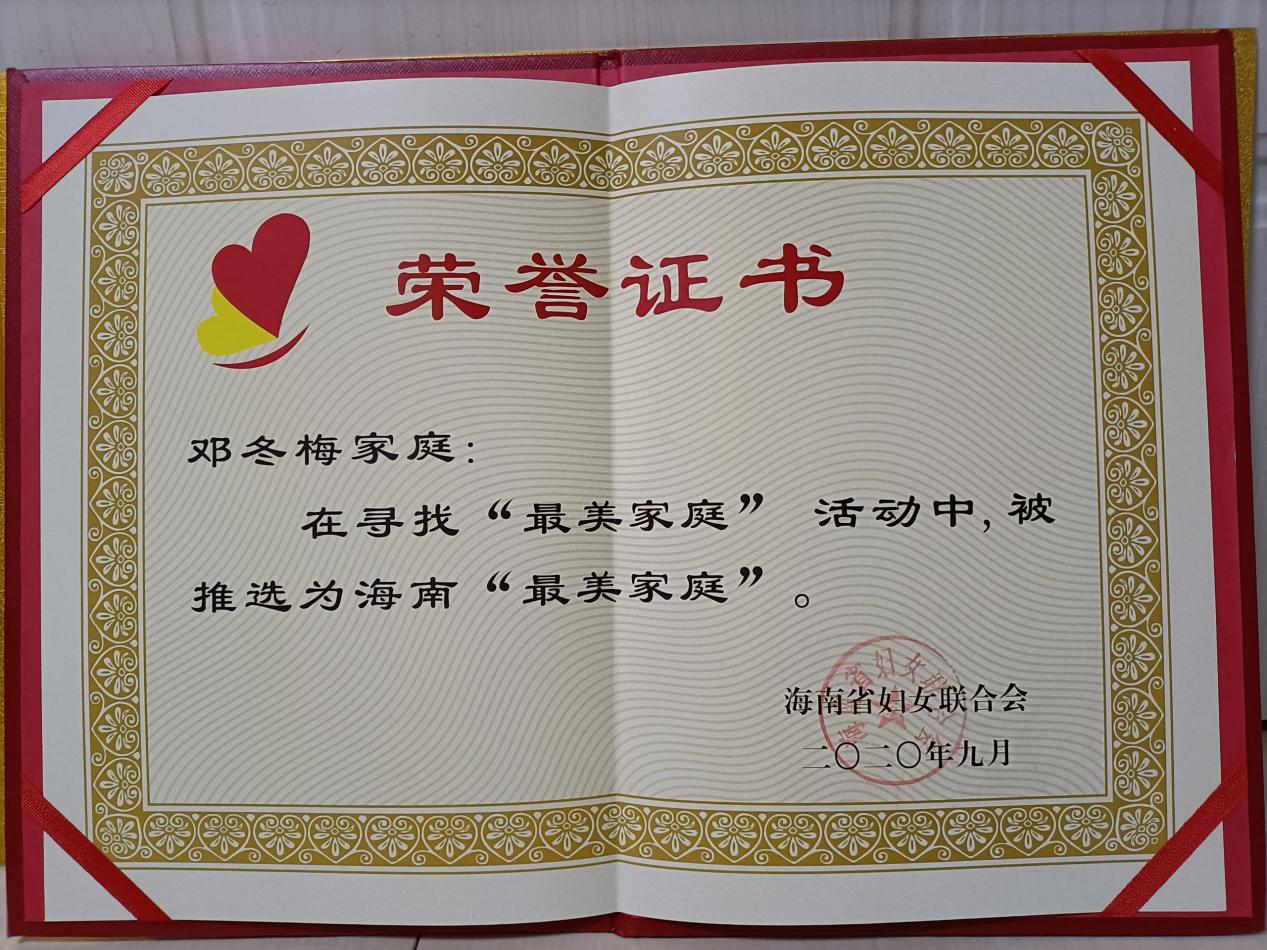 荣誉证书
邓冬梅家庭：
在寻找“最美家庭”活动中，被
推选为海南“最美家庭”。
海南省妇女联合会
二〇二〇年九月
海南省妇女联合会